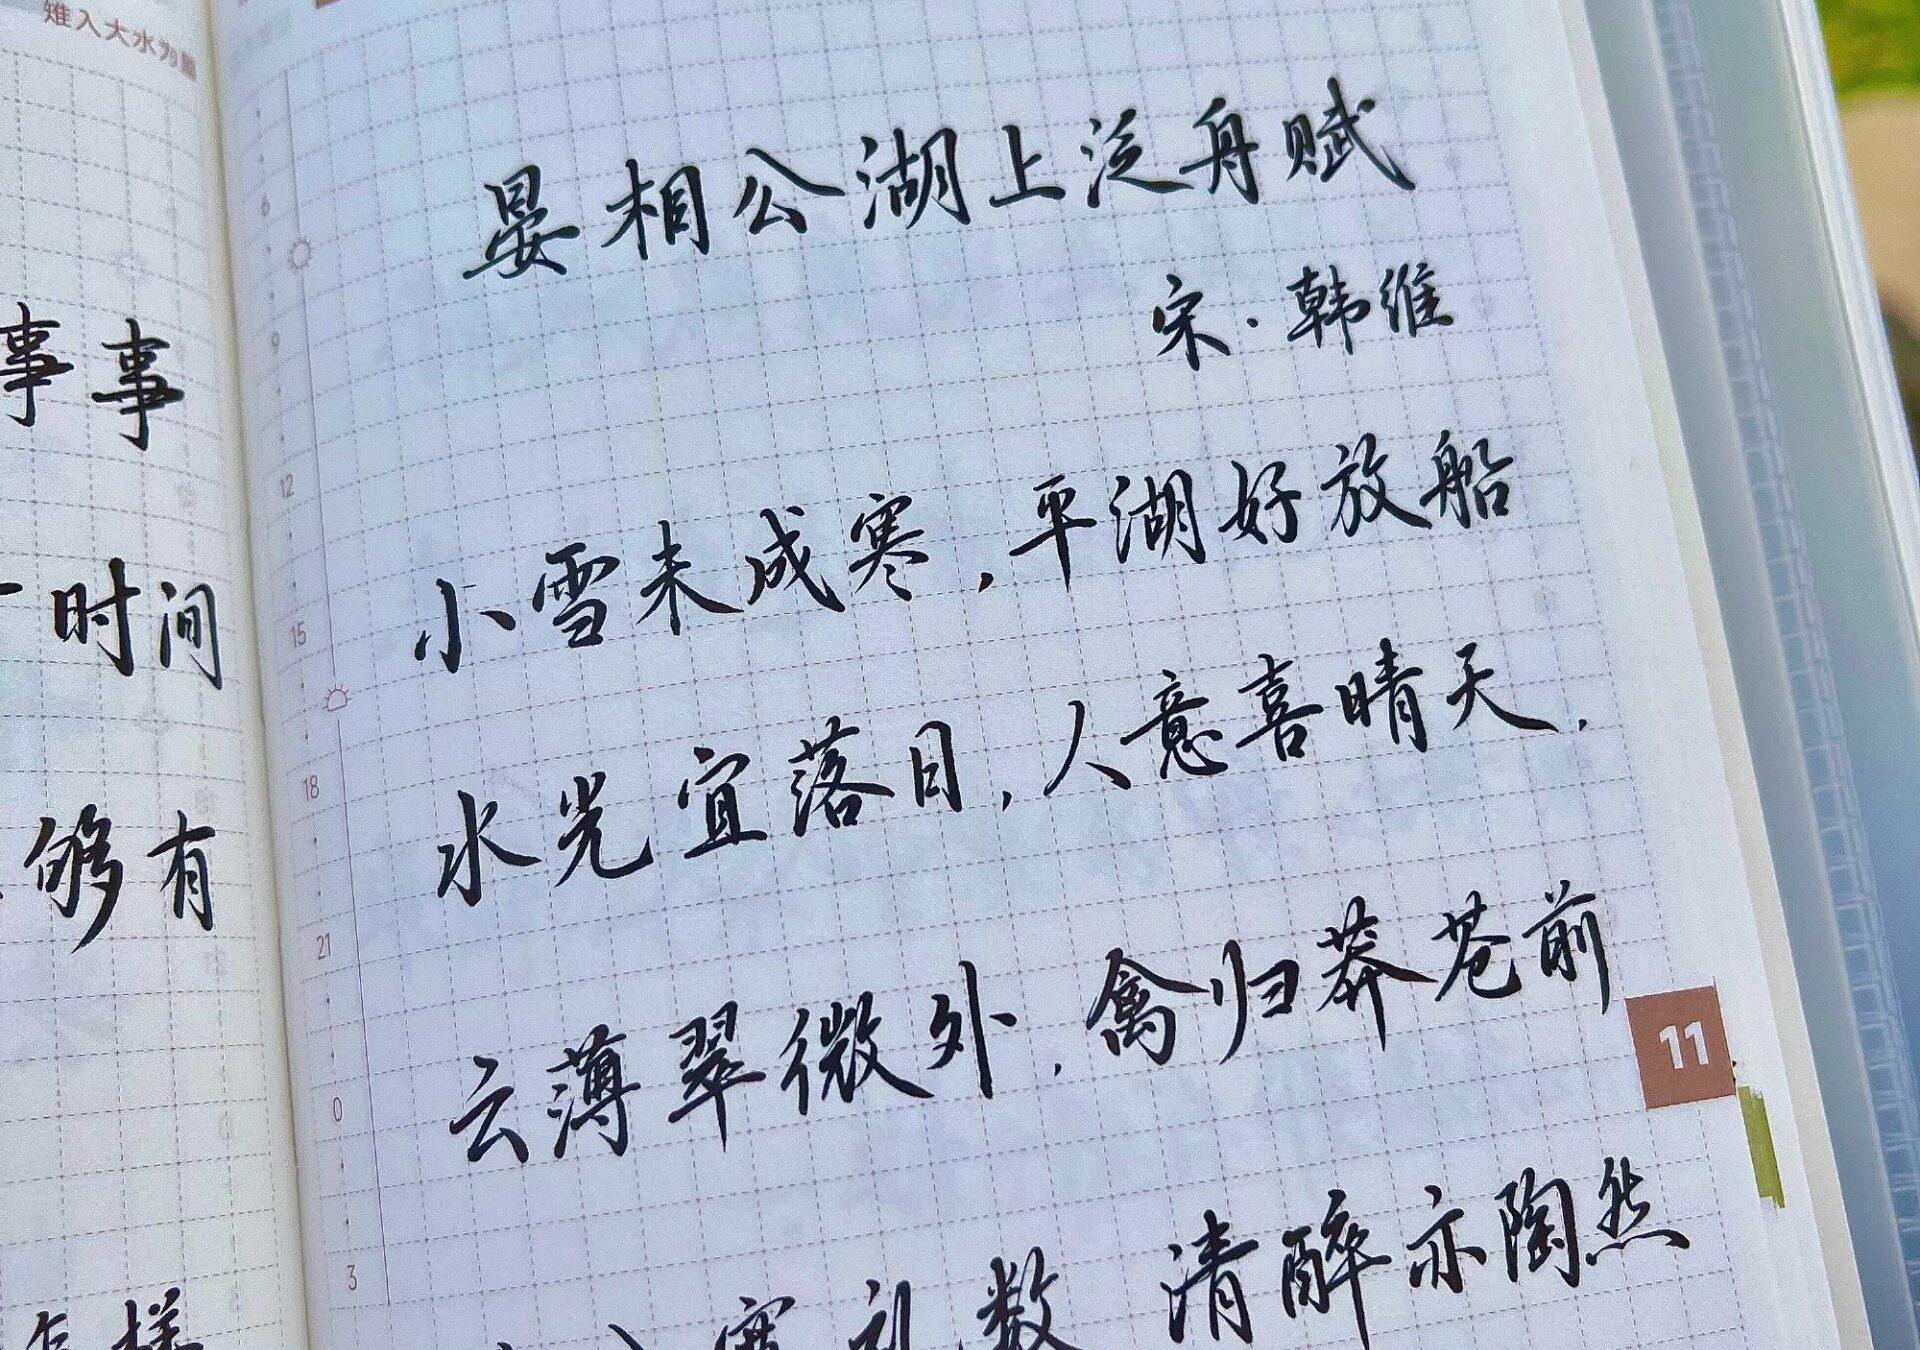 雉入大水为蜃
事事
时间
够有
怎样
晏相公湖上泛舟赋
宋·韩维
小雪未成寒,平湖好放船
水光宜落日,人意喜晴天.
云薄翠微外,禽归莽苍前
宽礼数 清醉亦陶然
6
9
12
15
18
21
0
3
11